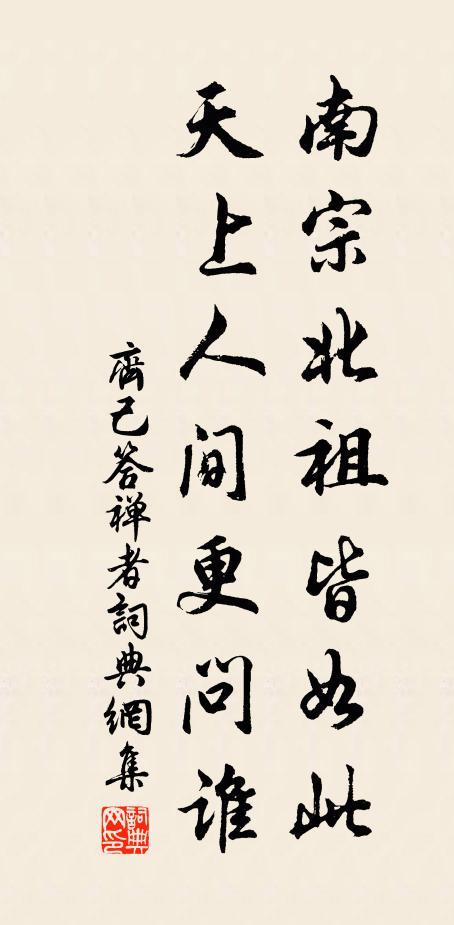 南宗北祖皆如此
天上人间更问谁
齊己答禅者詞典網集
詞典网印